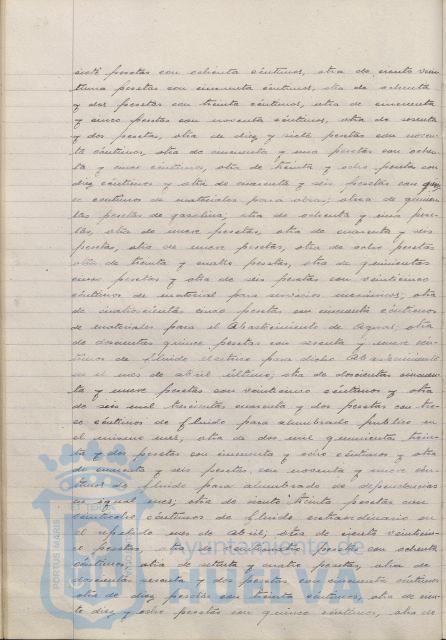 siete pesetas con ochenta céntimos, otra de ciento vein
tiuna pesetas con cincuenta céntimos, otra de ochenta
y dos pesetas con treinta céntimos, otra de cincuenta
y cinco pesetas con noventa céntimos, otra de sesenta
y dos pesetas, otra de diez y siete pesetas con noven
ta céntimos, otra de cincuenta y una pesetas con ochen
ta y cinco céntimos, otra de treinta y ocho pesetas con
diez céntimos y otra de cuarenta y seis pesetas con quin
ce céntimos de materiales para obras; otra de quinien
tas pesetas de gasolina; otra de ochenta y una pese
tas, otra de nueve pesetas, otra de cuarenta y seis
pesetas, otra de nueve pesetas, otra de ocho pesetas
otra de treinta y cuatro pesetas, otra de quinientas
once pesetas y otra de seis pesetas con veinticinco
céntimos de material para servicios mecánicos; otra
de cuatrocientas cinco pesetas con cincuenta céntimos
de materiales para el Abastecimiento de Aguas; otra
de doscientas quince pesetas con sesenta y nueve cén
timos de fluido eléctrico para dicho Abastecimiento
en el mes de abril último; otra de doscientas cincuen
ta y nueve pesetas con veinticinco céntimos y otra
de seis mil trescientas cuarenta y dos pesetas con tre
ce céntimos de fluido para alumbrado público en
el mismo mes; otra de dos mil quinientas trein
ta y dos pesetas con cincuenta y ocho céntimos y otra
de cuarenta y seis pesetas con noventa y nueve cén
timos de fluido para alumbrado de dependencias
en igual mes; otra de ciento treinta pesetas con
veintiocho céntimos de fluido extraordinario en
el repetido mes de abril; otra de ciento veinticin
co pesetas, otra de pesetas con ochenta
céntimos, otra de setenta y cuatro pesetas, otra de
doscientas sesenta y dos pesetas con cincuenta céntimos
otra de diez pesetas con treinta céntimos, otra de cien
to diez y ocho pesetas con quince céntimos, otra de
PORTUS MARIS ET TERRAE CUSTODIA
Ayuntamiento de
HUELVA